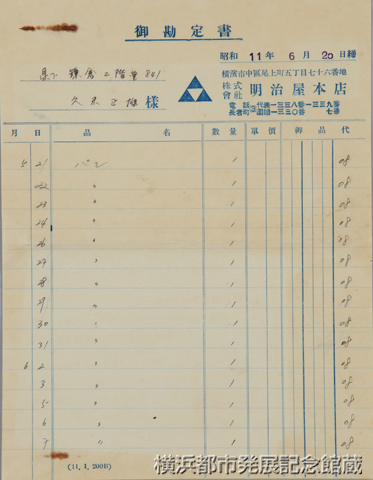 御勘定書
昭和 11年 6月 20日締
横濱市中區尾上町五丁目七十六番地
株式會社 明治屋本店
電話 代表一三三八番・一三三九番
長者町 一三三〇番 七番
鎌倉二階堂841
久米正雄 様
月 日 品 名 數量 單價 御品代
5 21 パン 1 08
22 〃 1 08
23 〃 1 08
24 〃 1 08
26 〃 1 08
27 〃 1 08
28 〃 1 08
29 〃 1 08
30 〃 1 08
31 〃 1 08
6 2 〃 1 08
3 〃 1 08
5 〃 1 08
6 〃 1 08
7 〃 1 08
(11.1.200B)
横浜都市発展記念館蔵